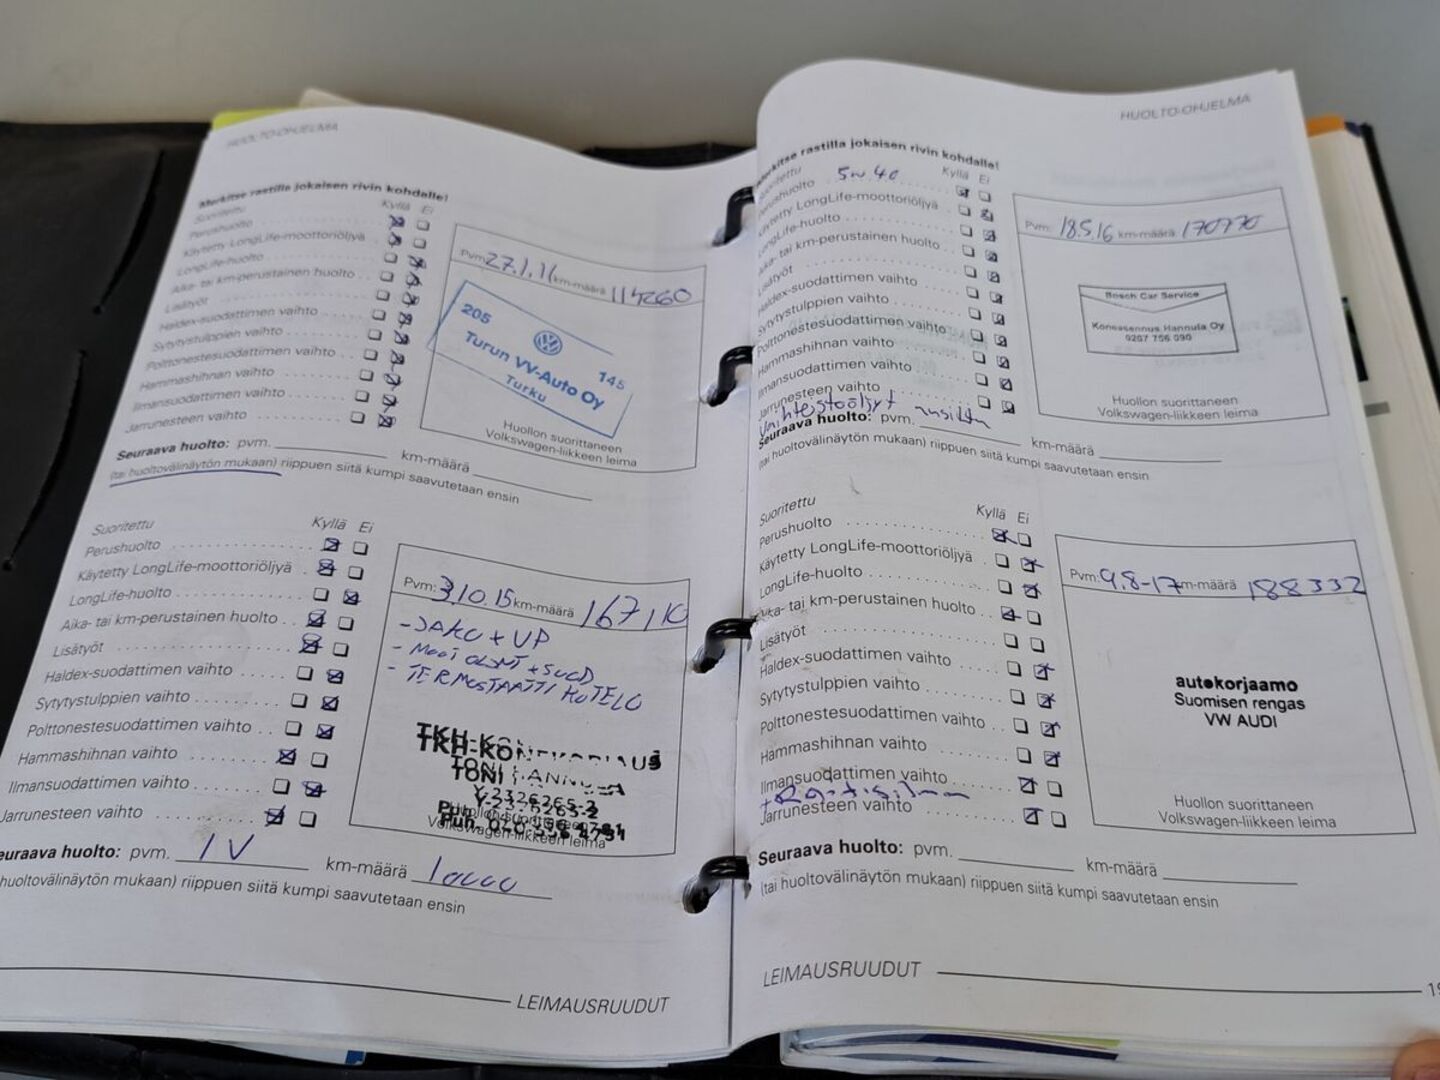 HUOLTO-OHJELMA
Merkitse rastilla jokaisen rivin kohdalle!
Suoritettu Kyllä Ei
Perushuolto
Käytetty LongLife-moottoriöljyä
LongLife-huolto
Aika- tai km-perustainen huolto
Lisätyöt
Haldex-suodattimen vaihto
Sytytystulppien vaihto
Polttonestesuodattimen vaihto
Hammashihnan vaihto
Ilmansuodattimen vaihto
Jarrunesteen vaihto
Pvm: 27.1.11 km-määrä 114260
205
145
Turun VV-Auto Oy
Turku
Huollon suorittaneen
Volkswagen-liikkeen leima
Seuraava huolto: pvm. km-määrä
(tai huoltovälinäytön mukaan) riippuen siitä kumpi saavutetaan ensin
Suoritettu Kyllä Ei
Perushuolto
Käytetty LongLife-moottoriöljyä
LongLife-huolto
Aika- tai km-perustainen huolto
Lisätyöt
Haldex-suodattimen vaihto
Sytytystulppien vaihto
Polttonestesuodattimen vaihto
Hammashihnan vaihto
Ilmansuodattimen vaihto
Jarrunesteen vaihto
Pvm: 3.10.15 km-määrä 167110
- JAKO + VP
- MOOT ÖLJYT + SUOD
- TERMOSTAATTI KOTELO
TONI
Y-2326265-2
Huollon suorittaneen
Volkswagen-liikkeen leima
Seuraava huolto: pvm. 1V km-määrä 10000
huoltovälinäytön mukaan) riippuen siitä kumpi saavutetaan ensin
LEIMAUSRUUDUT
HUOLTO-OHJELMA
Merkitse rastilla jokaisen rivin kohdalle!
Suoritettu 5w.40 Kyllä Ei
Perushuolto
Käytetty LongLife-moottoriöljyä
LongLife-huolto
Aika- tai km-perustainen huolto
Lisätyöt
Haldex-suodattimen vaihto
Sytytystulppien vaihto
Polttonestesuodattimen vaihto
Hammashihnan vaihto
Ilmansuodattimen vaihto
Jarrunesteen vaihto
Vaihteistoöljyt uusittu
Pvm: 18.5.16 km-määrä 170770
Bosch Car Service
Koneasennus Hannula Oy
0207 756 090
Huollon suorittaneen
Volkswagen-liikkeen leima
Seuraava huolto: pvm. km-määrä
(tai huoltovälinäytön mukaan) riippuen siitä kumpi saavutetaan ensin
Suoritettu Kyllä Ei
Perushuolto
Käytetty LongLife-moottoriöljyä
LongLife-huolto
Aika- tai km-perustainen huolto
Lisätyöt
Haldex-suodattimen vaihto
Sytytystulppien vaihto
Polttonestesuodattimen vaihto
Hammashihnan vaihto
Ilmansuodattimen vaihto
Jarrunesteen vaihto
Pvm: 9.8-17 km-määrä 188332
autokorjaamo
Suomisen rengas
VW AUDI
Huollon suorittaneen
Volkswagen-liikkeen leima
Seuraava huolto: pvm. km-määrä
(tai huoltovälinäytön mukaan) riippuen siitä kumpi saavutetaan ensin
LEIMAUSRUUDUT